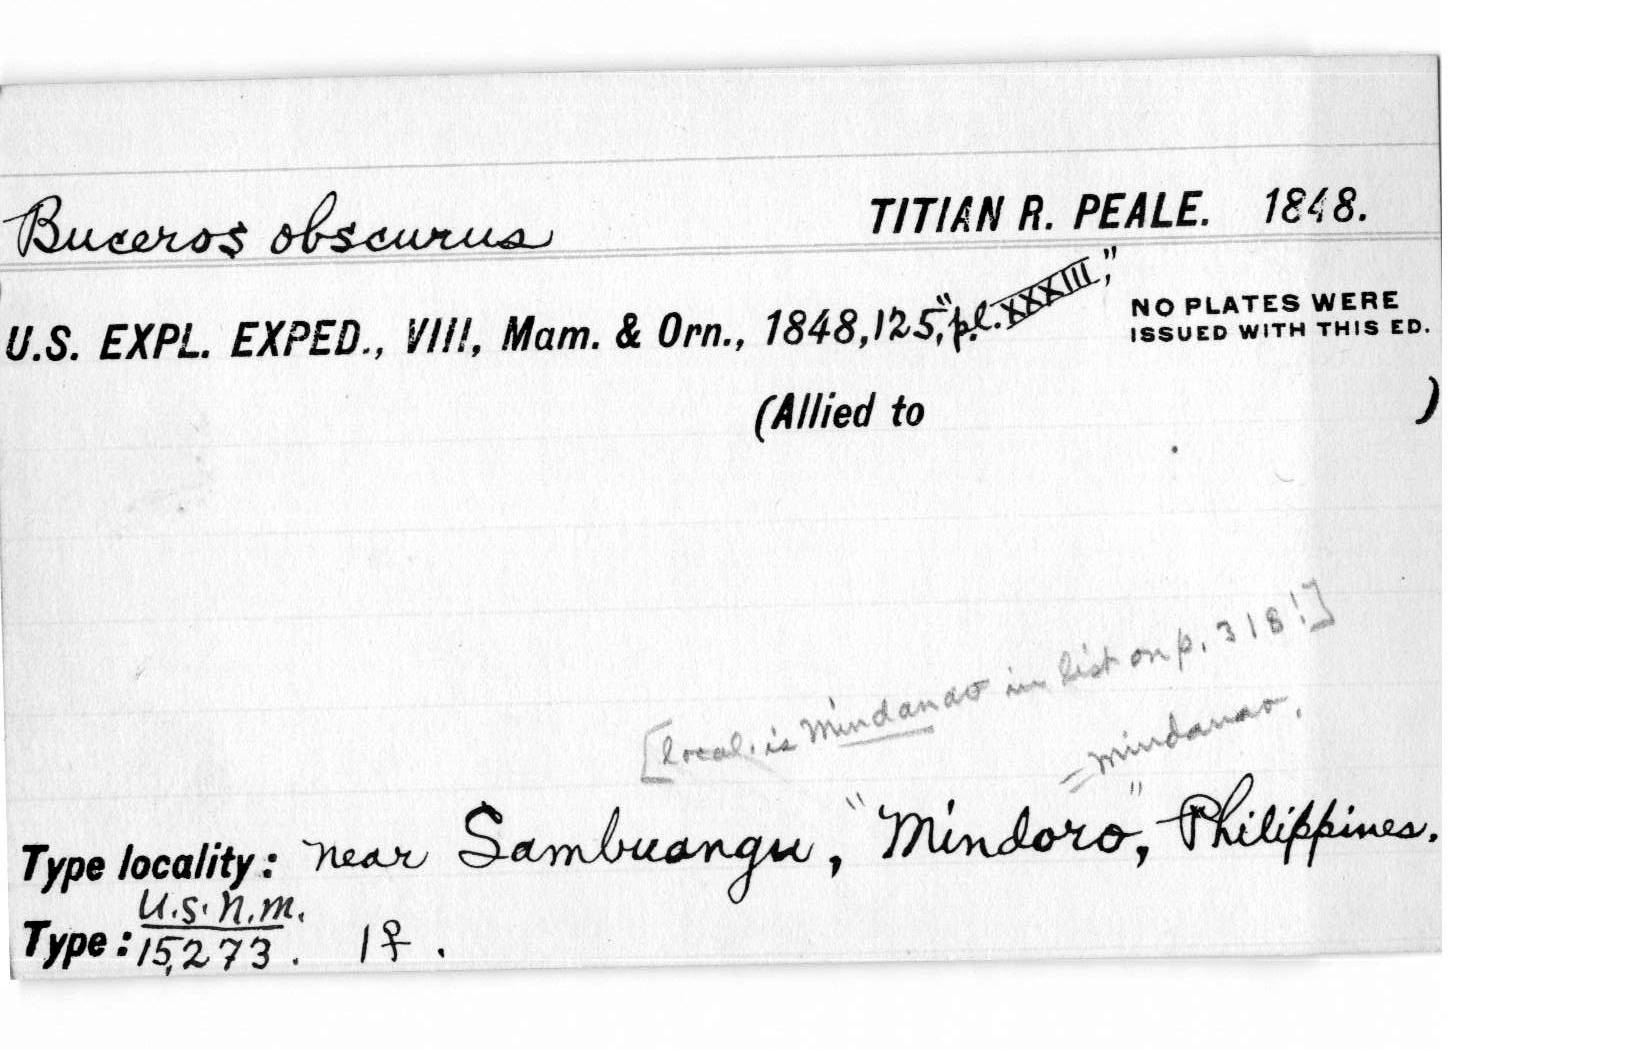 Buceros obscurus TITIAN R. PEALE. 1848.
U.S. EXPL. EXPED., VIII, Mam. & Orn., 1848, 125, "pl. XXXIII," NO PLATES WERE
ISSUED WITH THIS ED.
(Allied to )
[local. is Mindanao in list on p. 318!]
= Mindanao.
Type locality: near Sambuangu, "Mindoro", Philippines.
U.S.N.M.
Type: 15,273. 1♀.